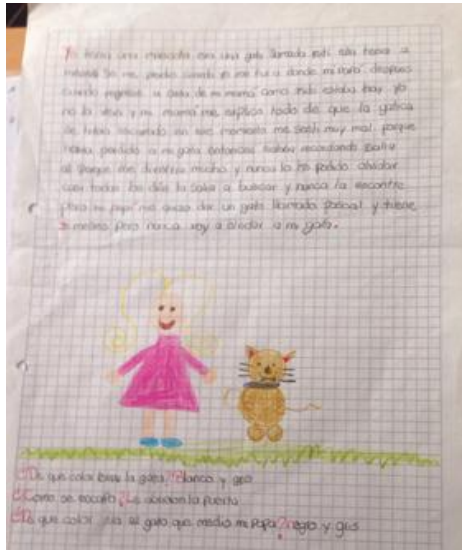 Yo tenia una mascota era una gata llamada esti ella tenia 2
meses se me perdio cuando yo me fui a donde mi papá despues
cuando regrese a casa de mi mama como esti estaba hay yo
no la veia y mi mamá me explico todo de que la gatica
se habia escapado en ese momento me senti muy mal porque
habia perdido a mi gata entonces recordando salia
al parque me divertia mucho y nunca la he podido olvidar
casi todos los dias la salia a buscar y nunca la encontre
pero mi papi me quizo dar un gato llamado pascal y tiene
3 meses pero nunca voy a olvidar a mi gata.
¿De que color era la gata? Blanca y gris
¿Como se escapo? Le abrieron la puerta
¿De que color era el gato que me dio mi papa? negro y gris